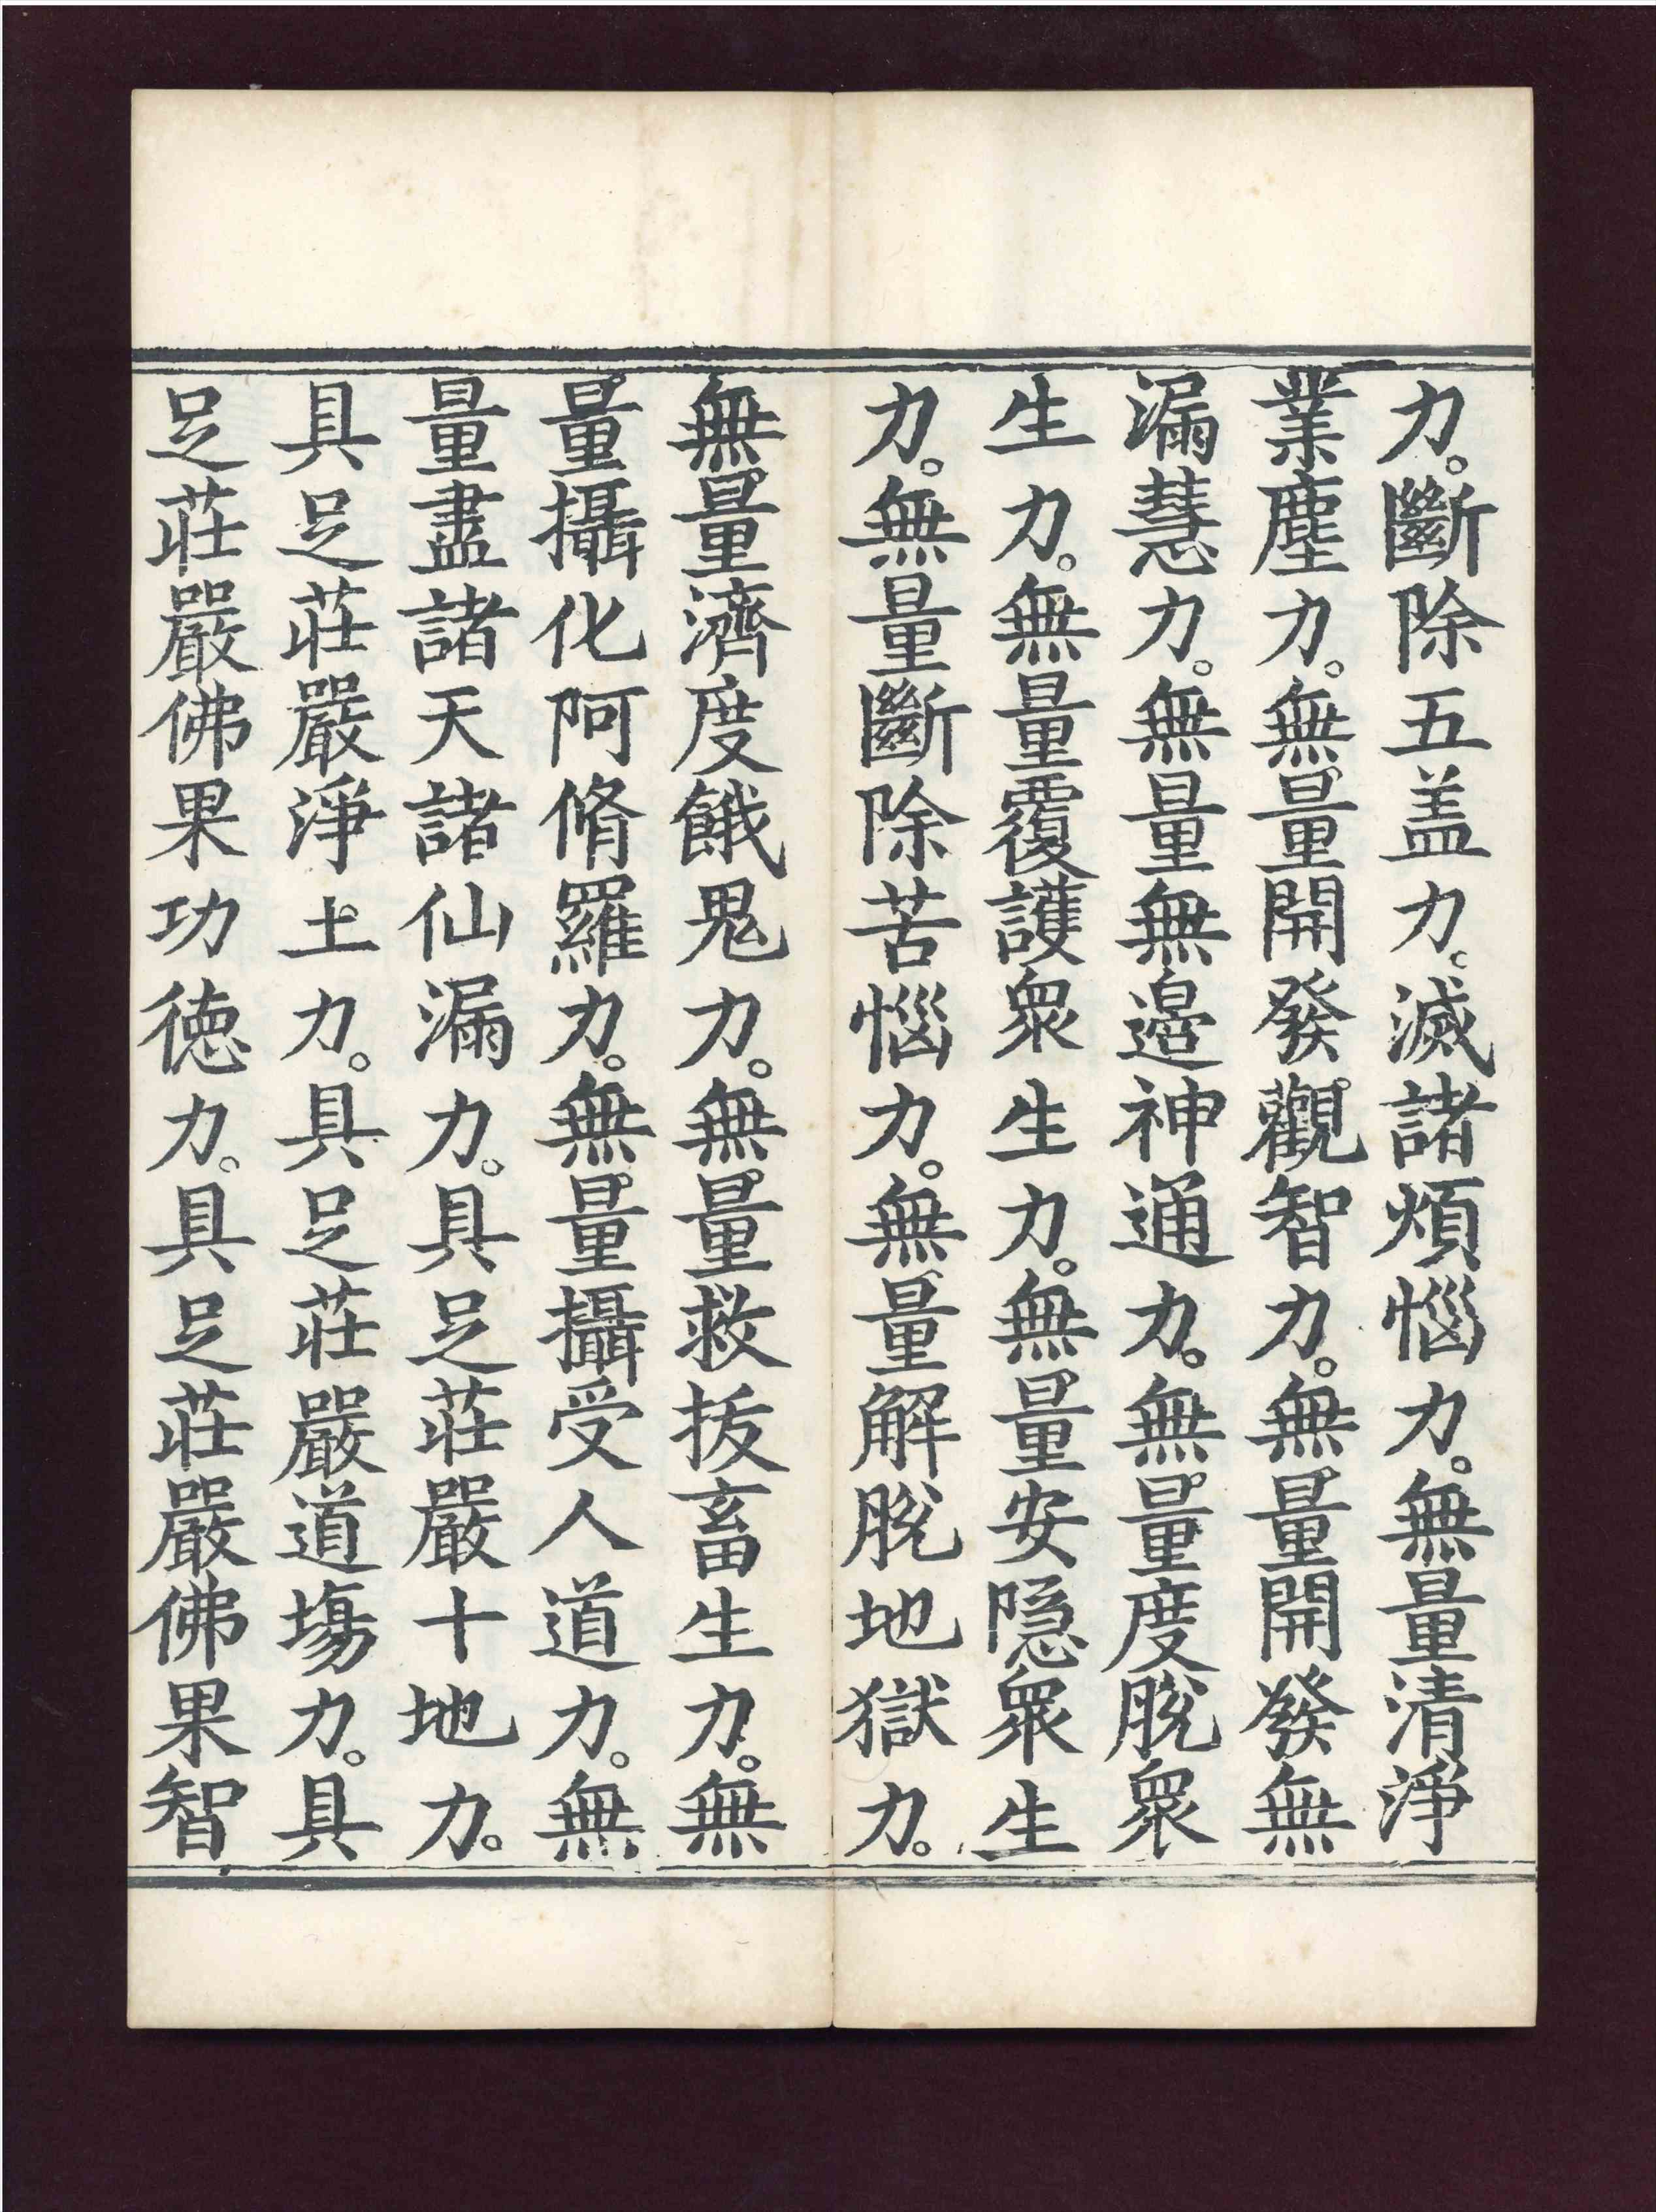 力。斷除五盖力。滅諸煩惱力。無量清淨
業塵力。無量開發觀智力。無量開發無
漏慧力。無量無邊神通力。無量度脫衆
生力。無量覆護衆生力。無量安隱衆生
力。無量斷除苦惱力。無量解脫地獄力。
無量濟度餓鬼力。無量救拔畜生力。無
量攝化阿脩羅力。無量攝受人道力。無
量盡諸天諸仙漏力。具足莊嚴十地力。
具足莊嚴淨土力。具足莊嚴道塲力。具
足莊嚴佛果功德力。具足莊嚴佛果智